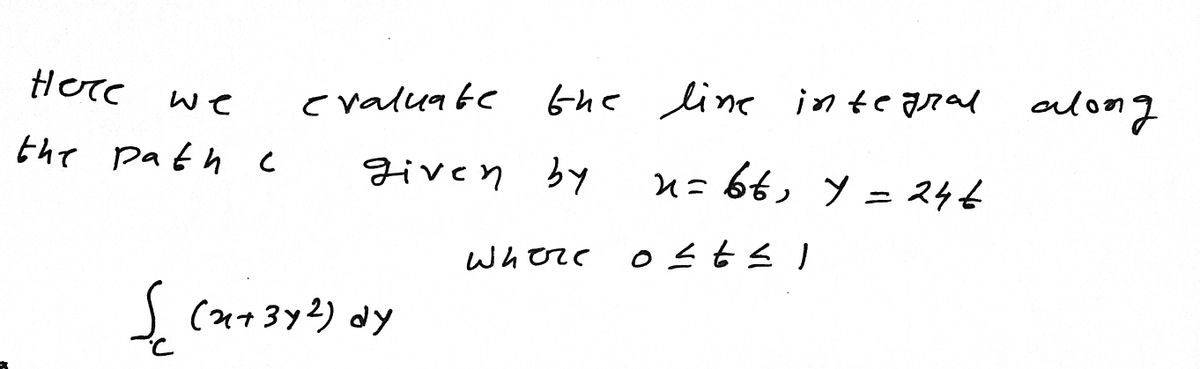 Here we evaluate the line integral along
the path c given by x = 6t, y = 24t
where 0 ≤ t ≤ 1
∫_C (x+3y²) dy